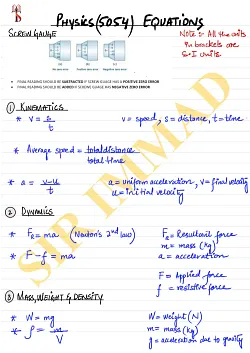 Physics (5054) Equations
SCREW GAUGE
Note :- All the units
in brackets are
S.I units
(a) (b) (c)
No zero error Positive zero error Negative zero error
• FINAL READING SHOULD BE SUBTRACTED IF SCREW GUAGE HAS A POSITIVE ZERO ERROR
• FINAL READING SHOULD BE ADDED IF SCREWE GUAGE HAS NEGATIVE ZERO ERROR
① KINEMATICS
* v = s/t v = speed, s = distance, t = time
* Average speed = total distance / total time
* a = v-u/t a = uniform acceleration, v = final velocity
u = initial velocity
② DYNAMICS
* FR = ma (Newton's 2nd law) FR = Resultant force
m = mass (kg)
* F - f = ma a = acceleration
F = Applied force
f = resistive force
③ MASS, WEIGHT & DENSITY
* W = mg W = weight (N)
* ρ = m/V m = mass (kg)
g = acceleration due to gravity
SIR EMMAD